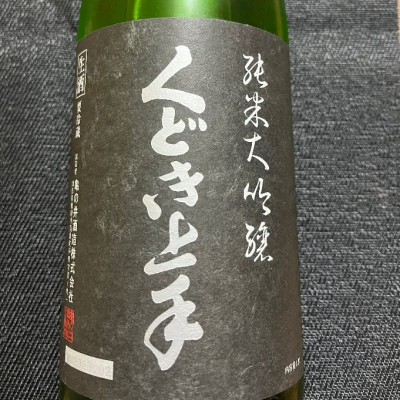 純米大吟醸
くどき上手
生酒
要冷蔵
亀の井酒造株式会社